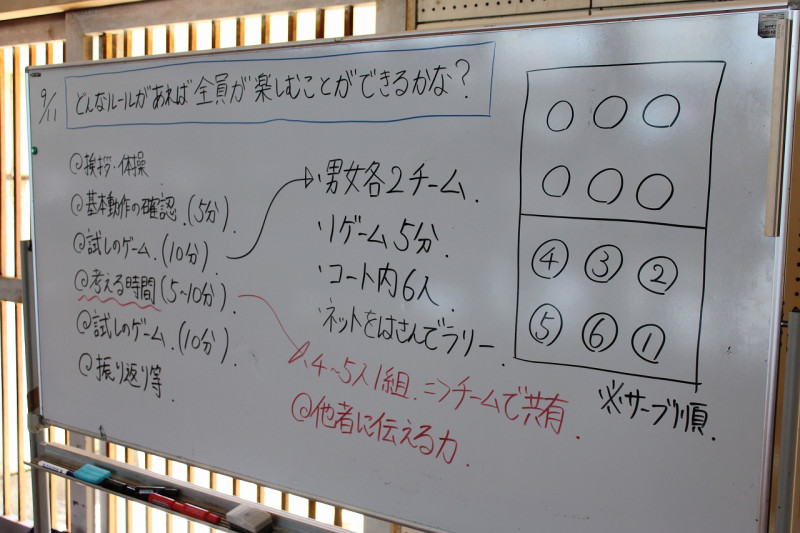 9/11
どんなルールがあれば全員が楽しむことができるかな?
@挨拶・体操
@基本動作の確認.(5分).
@試しのゲーム.(10分).
@考える時間(5~10分).
@試しのゲーム.(10分).
@振り返り等
・男女各2チーム.
・1ゲーム5分.
・コート内6人.
・ネットをはさんでラリー.
・4~5人1組.=>チームで共有.
@他者に伝える力.
④ ③ ②
⑤ ⑥ ①
※サーブ順.